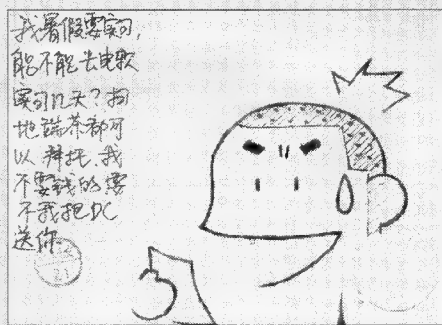 我暑假要实习,
能不能去电软
实习几天？扫
地端茶都可
以 拜托、我
不要钱的 要
不我把DC
送你
21